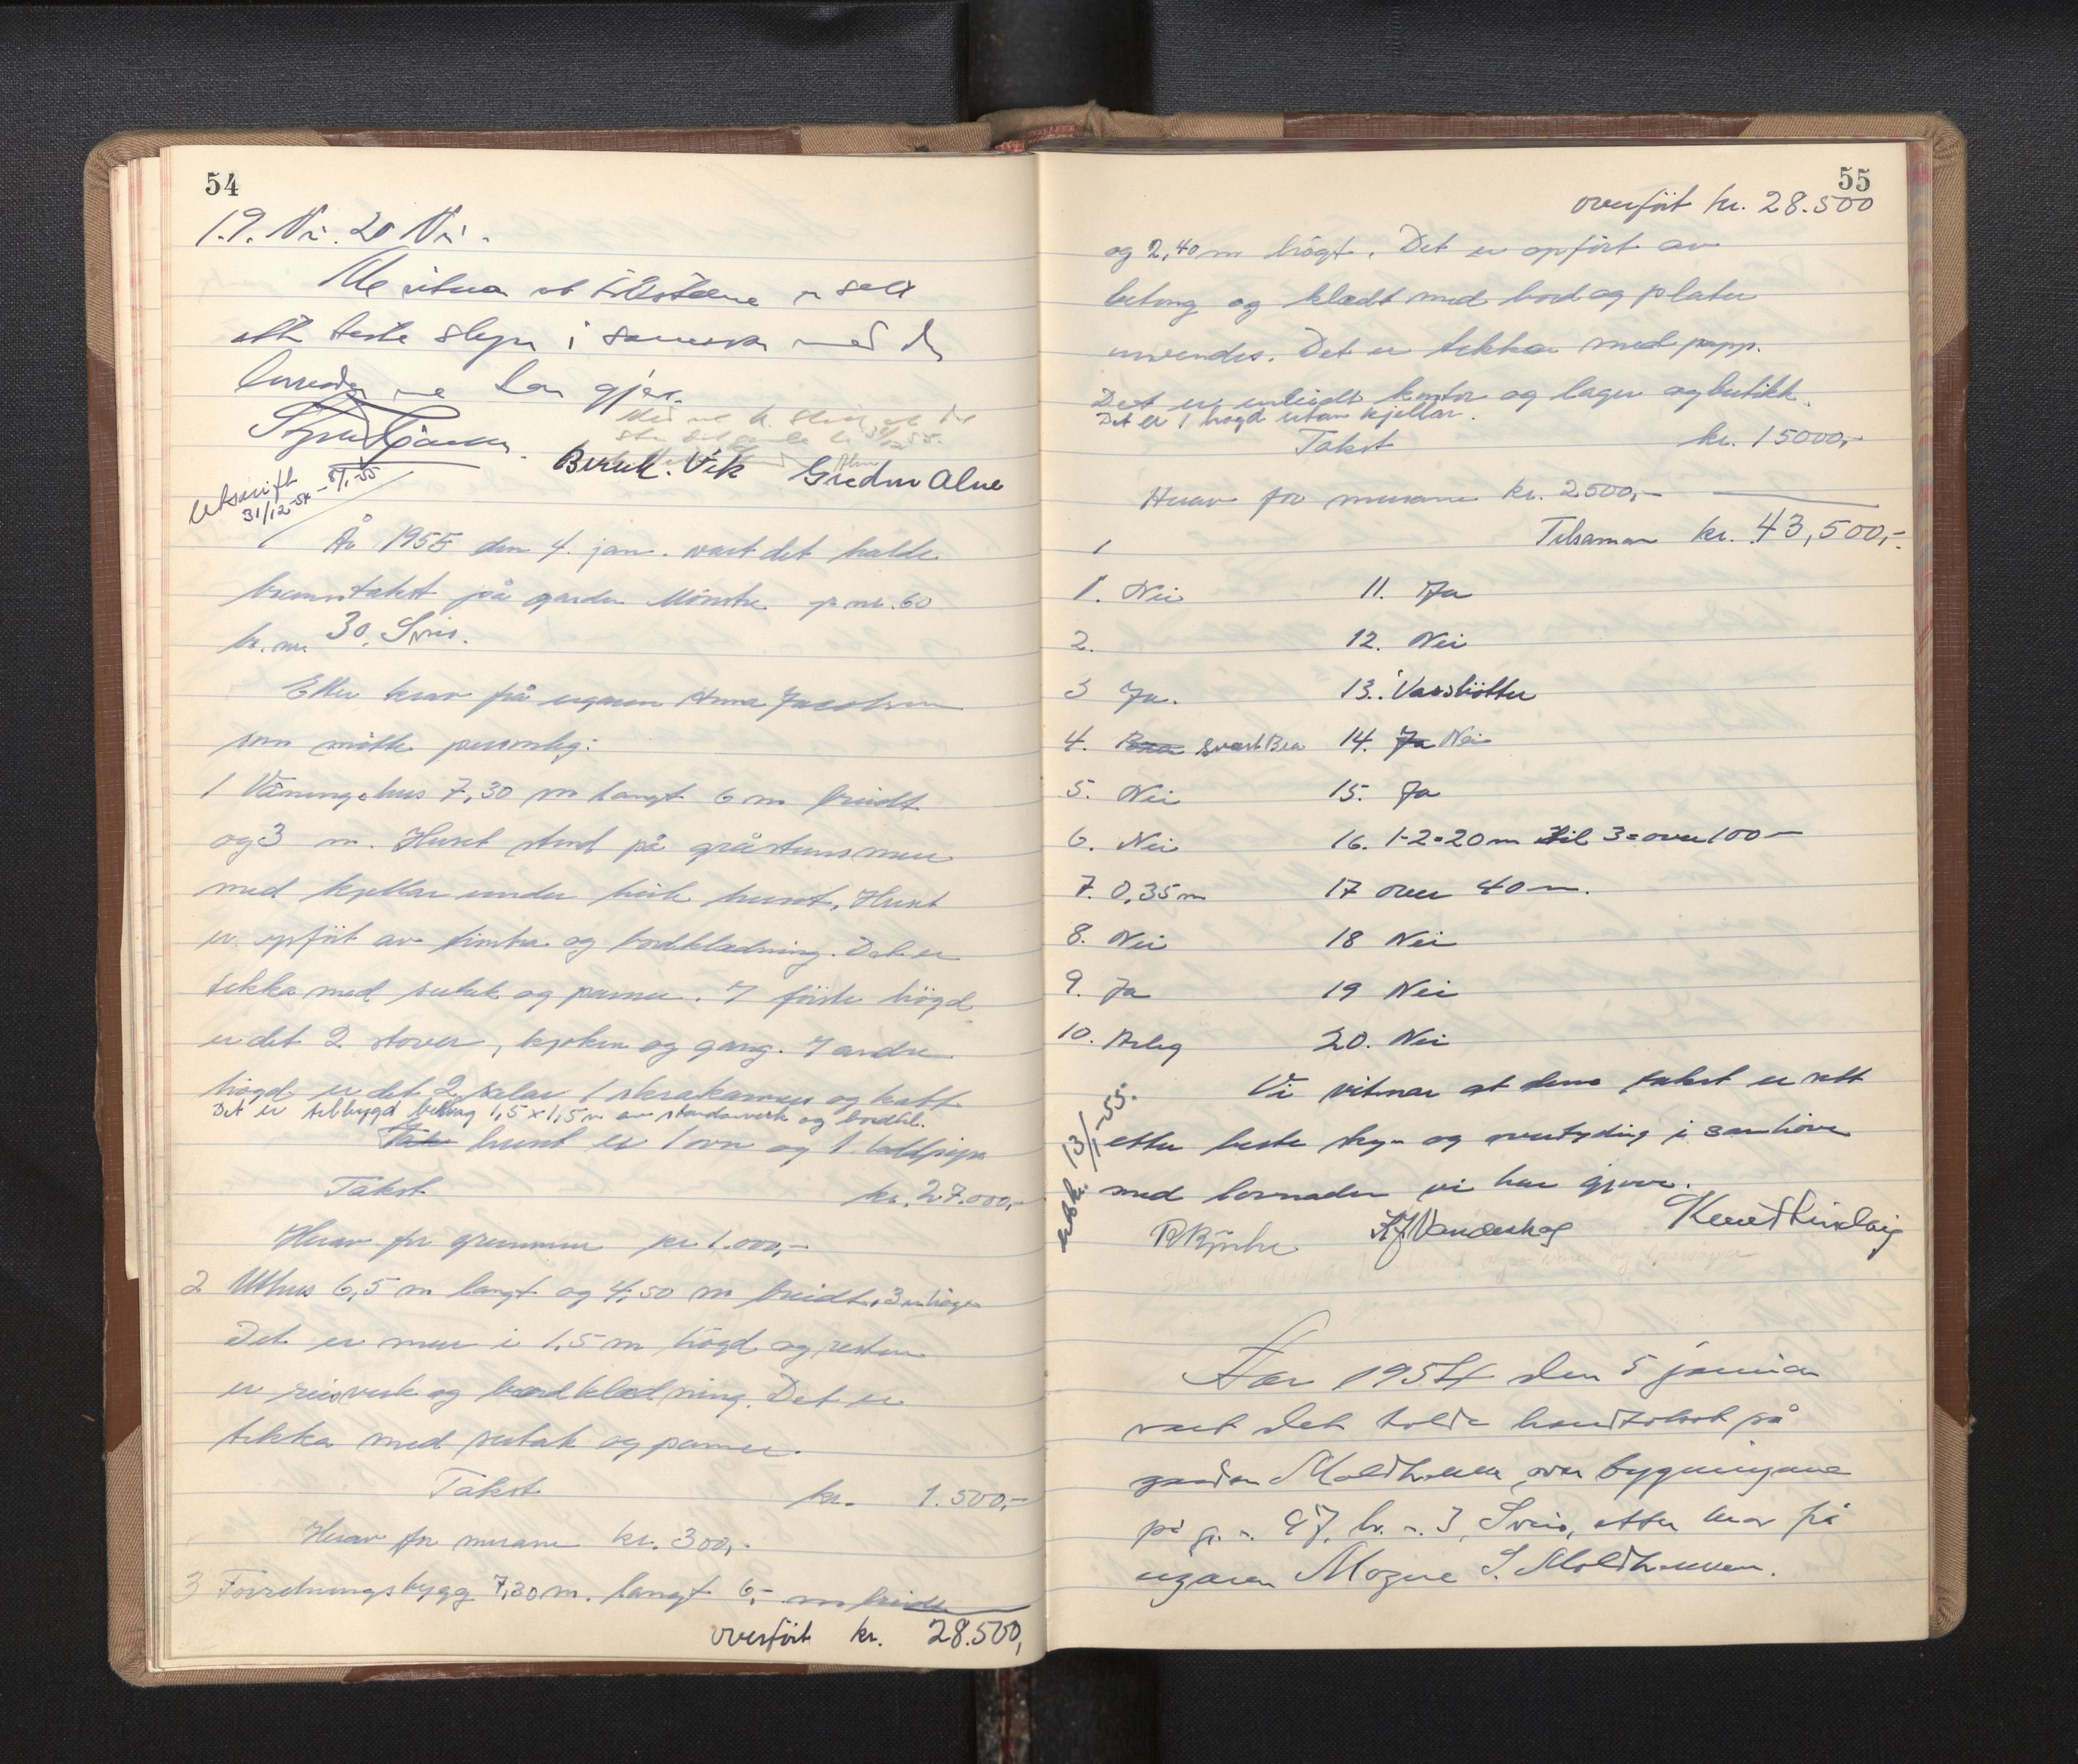 54
19. Nei. 20 Nei.
Me vitnar at tilstelne er sett
ette beste skyn i samsvar med dei
lovnader me har gjer.
Bernh. Vik Gudm Alne
Utskrift
31/12-54 - 5/1-55
År 1955 den 4. jan. vart det halde
branntakst på garden Mönstre g.nr. 60
br.nr. 30. Sveio.
Etter krav frå eigaren Anna Jacobsen
som mötte personleg:
1 Våningshus 7,30 m langt 6 m breidt
og 3 m. Huset stend på gråsteinsmur
med kjellar under heile huset. Huset
er opfört av timber og bordklædning. Det er
tekka med sutak og panner. I förste högd
er det 2 stover, kjøken og gang. I andre
högd er det 2 salar 1 skrakammer og kott
Det er tilbygd bislag 1,5 x 1,5 m av standarverk og bordkl.
huset er 1 ovn og 1 teglpipe
Takst kr. 27.000,-
Herav for grunnmur kr 1.000,-
2 Uthus 6,5 m langt og 4,50 m breidt, 3 m högt
Det er mur i 1,5 m högd og resten
er reisverk og bordklædning. Det er
tekka med sutak og panner.
Takst kr. 1.500,-
Herav for murane kr. 300,-
3 Forretningsbygg 7,30 m. langt 6,- m breidt
overfört kr. 28.500,
55
overfört kr. 28.500
og 2,40 m högt. Det er opfört av
betong og klædt med bord og plater
innvendes. Det er tekka med papp.
Det er innreidt kontor og lager og butikk.
Det er 1 högd utan kjellar.
Takst kr. 15000,-
Herav for murane kr. 2500,-
Tilsaman kr. 43,500,-
1. Nei 11. Ja
2. 12. Nei
3 Ja. 13. Vassbötter
4. Bra svært Bra 14. Ja Nei
5. Nei 15. Ja
6. Nei 16. 1-2=20 m til 3=over 100 -
7. 0,35 m 17 over 40 m.
8. Nei 18 Nei
9. Ja 19 Nei
10. Årleg 20. Nei
Vi vitnar at denne takst er sett
etter beste skyn og overtyding i samhöve
med lovnaden vi har gjeve.
utsk. 13/1-55.
År 1954 den 5 januar
vart det halde branntakst på
garden Moldhaugen over bygningane
på g.n. 97, br.n. 3, Sveio, etter krav frå
eigaren Mogne S. Moldhaugen.